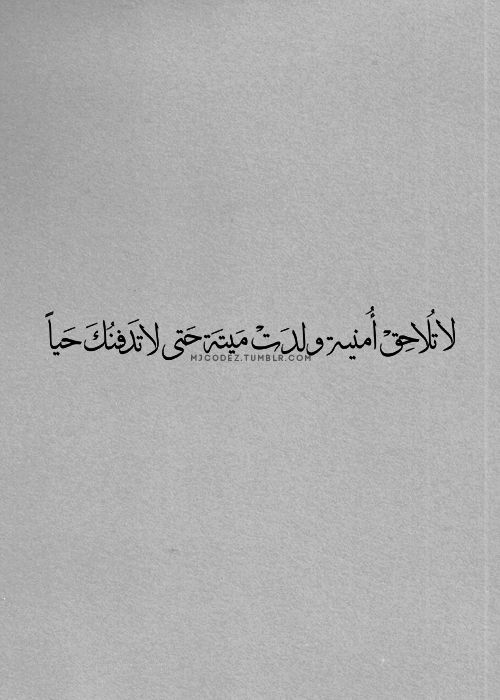 لا تُلاحِقْ أُمنية ولدَتْ مَيتَة حَتى لا تَدفنُكَ حَياً
MJCODEZ.TUMBLR.COM